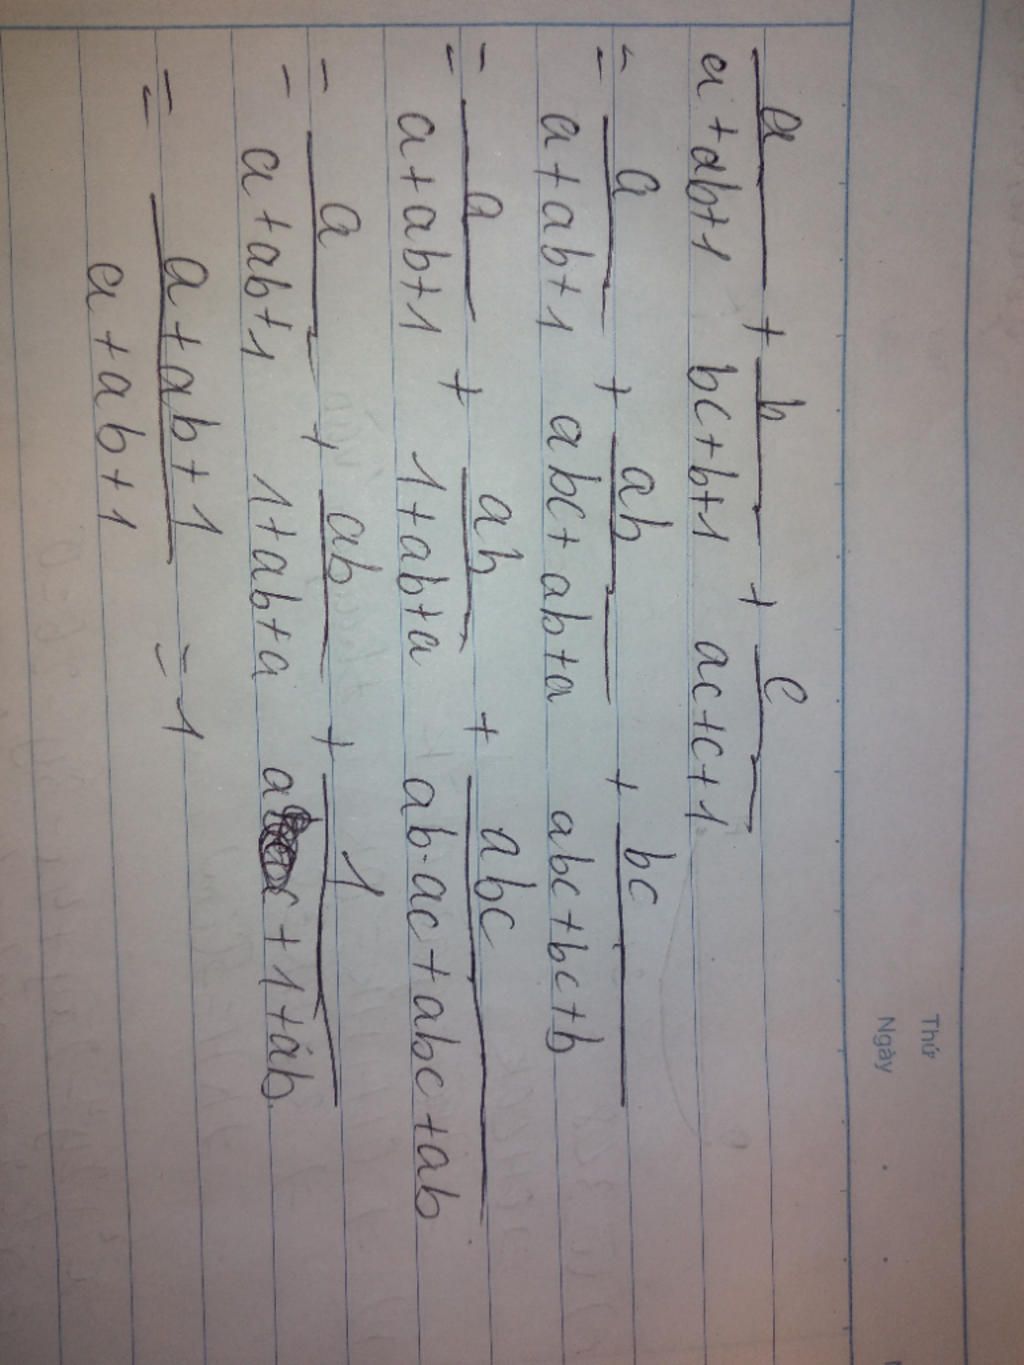 Thứ
Ngày
a/(a+ab+1) + b/(bc+b+1) + c/(ac+c+1)
= a/(a+ab+1) + ab/(abc+ab+a) + bc/(abc+bc+b)
= a/(a+ab+1) + ab/(1+ab+a) + abc/(ab.ac+abc+ab)
= a/(a+ab+1) + ab/(1+ab+a) + 1/(a+1+ab)
= (a+ab+1)/(a+ab+1) = 1